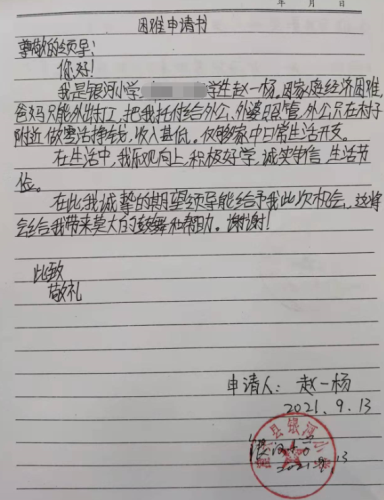 年 月 日
困难申请书
尊敬的领导:
您好!
我是银河小学 学生赵一杨。因家庭经济困难,
爸妈只能外出打工,把我托付给外公、外婆照管,外公只在村子
附近做零活挣钱,收入甚低。仅够家中日常生活开支。
在生活中,我乐观向上,积极好学,诚实守信,生活节
俭。
在此我诚挚的期望领导能给予我此次机会,这将
会给我带来莫大的鼓舞和帮助。谢谢!
此致
敬礼
申请人:赵一杨
2021.9.13
县银河小
2021.9.13